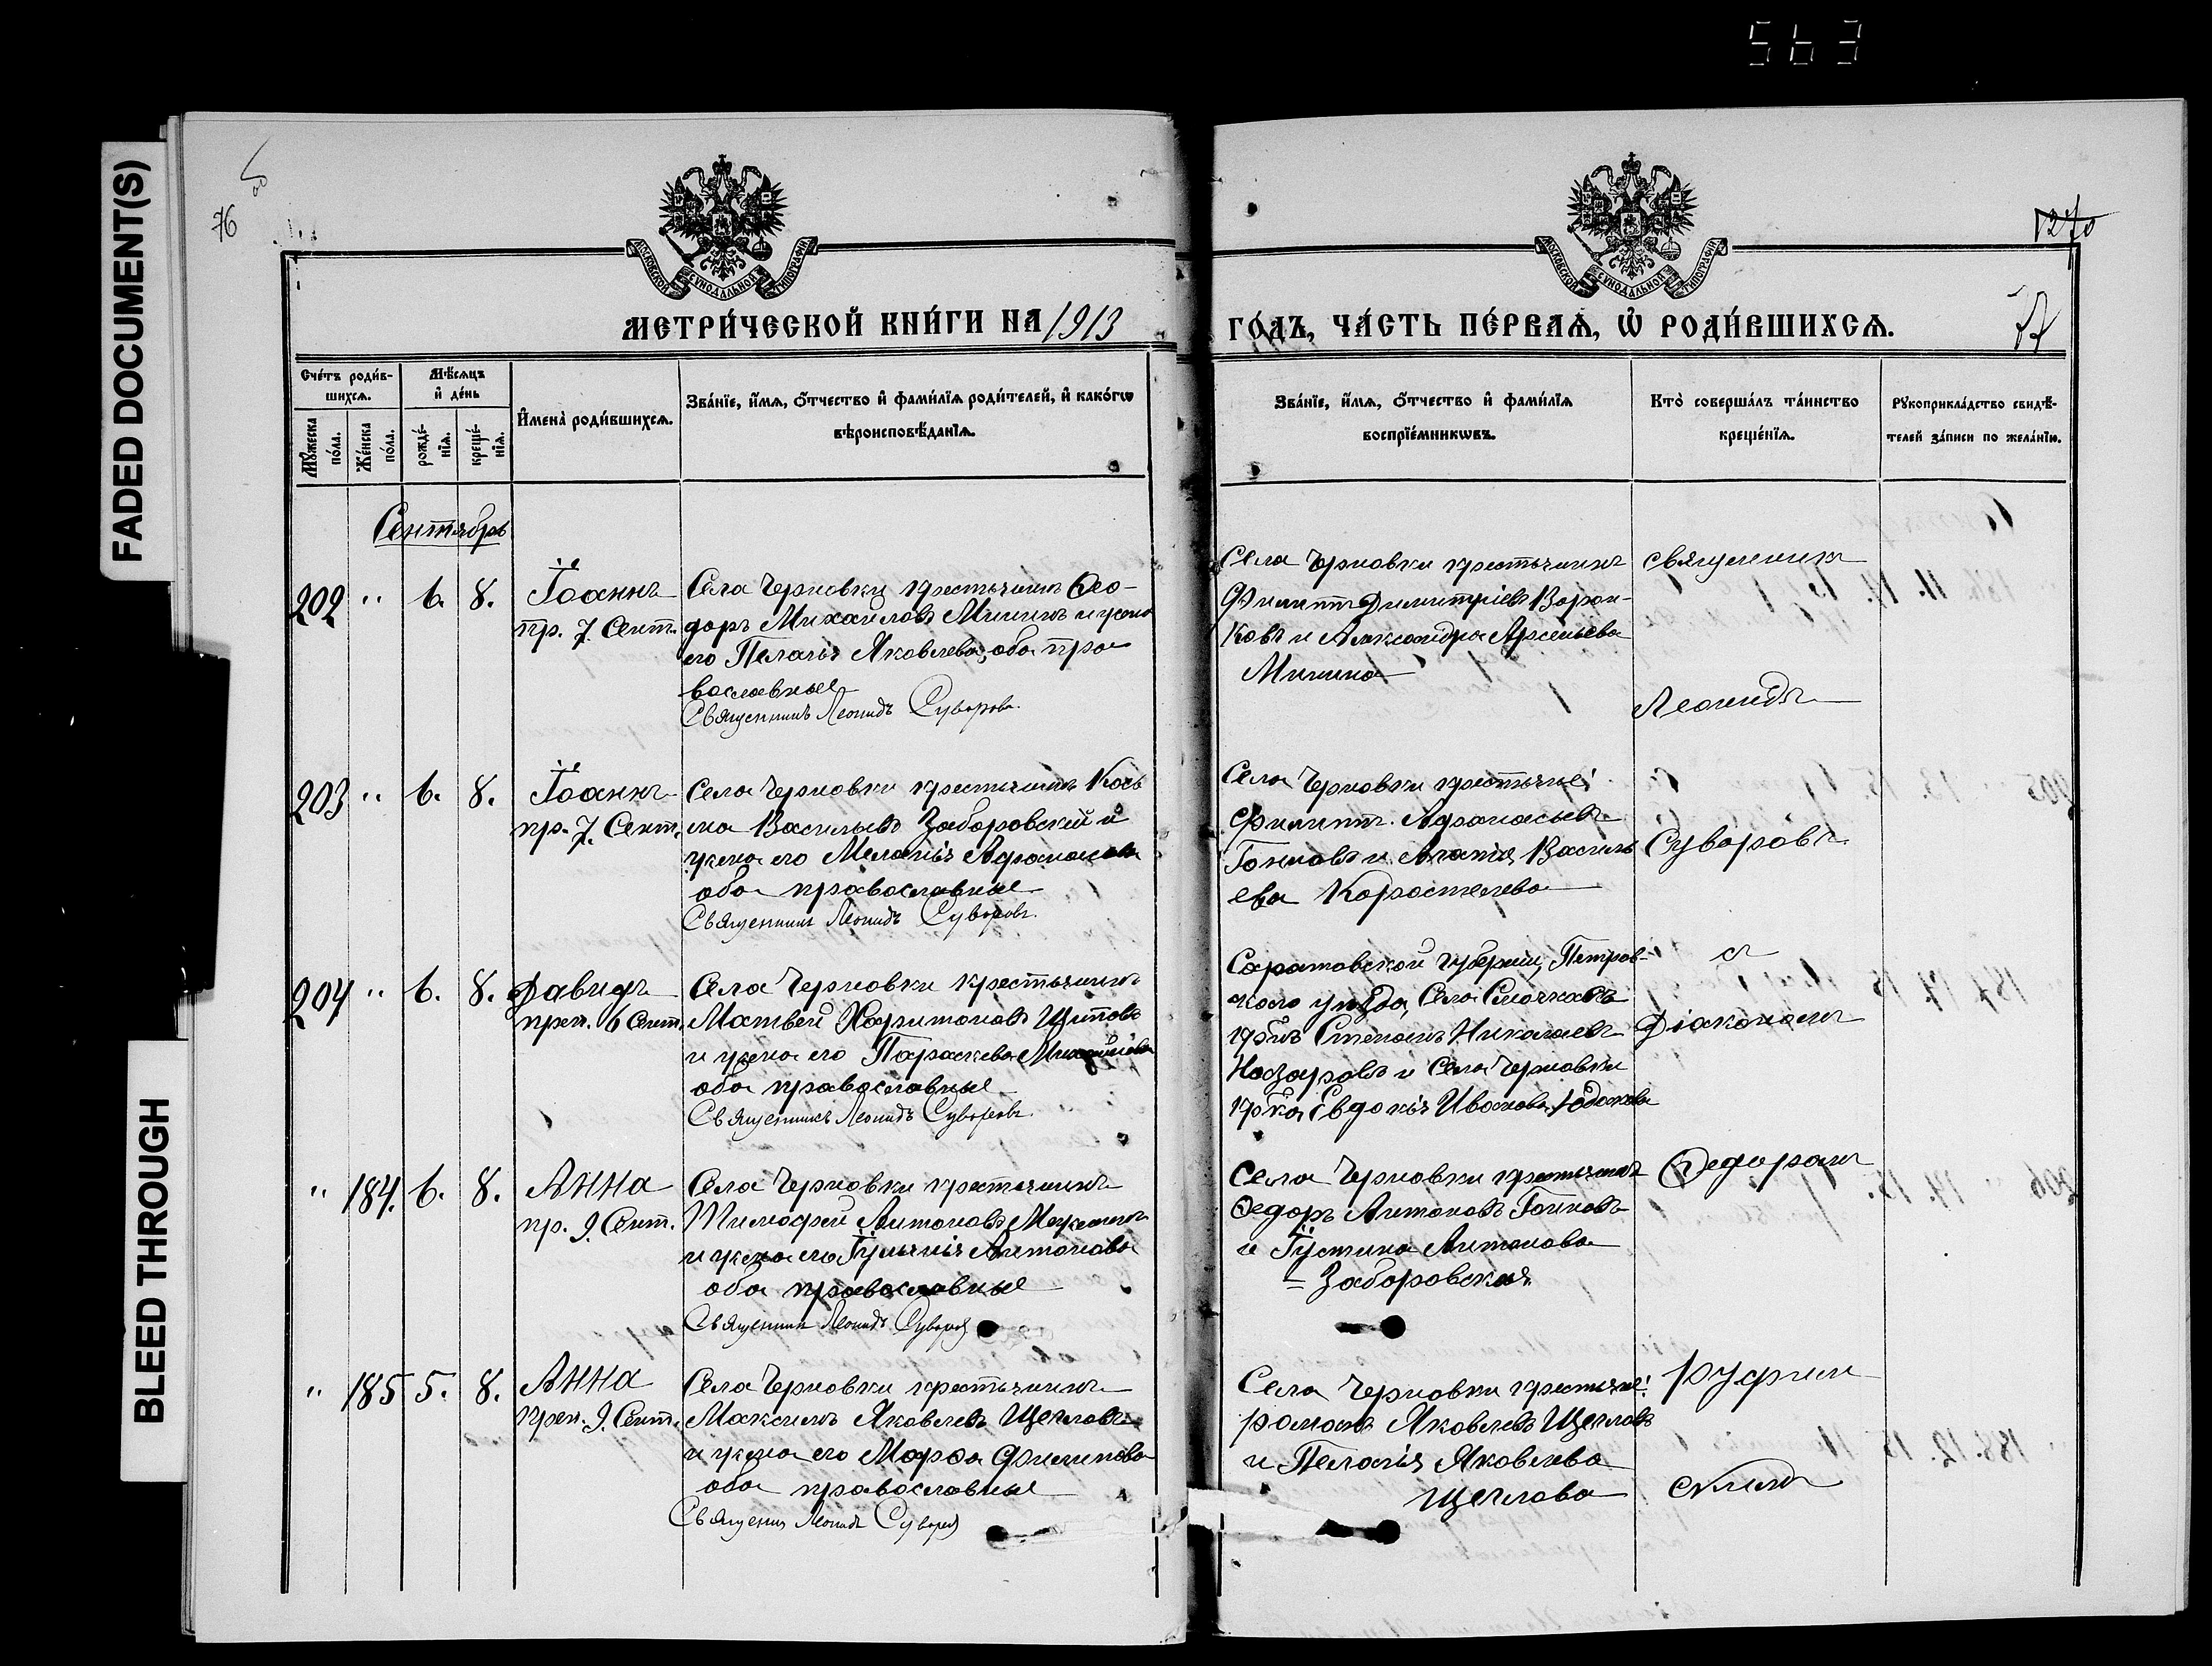 563
FADED DOCUMENT(S)
BLEED THROUGH
76
1270
77
МОСКОВСКОЙ СУНОДАЛЬНОЙ ТИПОГРАФІИ
МОСКОВСКОЙ СУНОДАЛЬНОЙ ТИПОГРАФІИ
МЕТРИ́ЧЕСКОЙ КНИ́ГИ НА 1913
ГО́ДЪ, ЧА́СТЬ ПЕ́РВАѦ, Ѡ РОДИ́ВШИХСѦ.
Сче́тъ роди́в-
шихсѧ.
Мꙋ́жеска
по́ла.
Же́нска
по́ла.
Мѣ́сѧцъ
и҆ де́нь
рожде́-
нїѧ.
креще́-
нїѧ.
И҆мена̀ роди́вшихсѧ.
Зва́нїе, и҆́мѧ, ѻ҆́тчество и҆ фами́лїѧ роди́телей, и҆ како́гѡ
вѣроисповѣ́данїѧ.
Зва́нїе, и҆́мѧ, ѻ҆́тчество и҆ фами́лїѧ
воспрїе́мникѡвъ.
Кто̀ соверша́лъ та́инство
креще́нїѧ.
Рꙋкоприкла́дство свидѣ́-
телей за́писи по жела́нїю.
Сентябрь
202 " 6. 8.
Іоаннъ
пр. 7. Сент.
Села Черновки крестьянинъ Ѳео-
доръ Михаиловъ Мининъ и жена
его Пелагія Яковлева, оба пра
вославные
Священникъ Леонидъ Суворовъ.
Села Черновки крестьянинъ
Филиппъ Димитріевъ Ворон-
ковъ и Александра Арсеньева
Минина
священникъ
Леонидъ
203 " 6. 8.
Іоаннъ
пр. 7. Сент.
Села Черновки крестьянинъ Косъ
ма Васильевъ Заборовскій и
жена его Меланія Афанасьева
оба православные
Священникъ Леонидъ Суворовъ.
Села Черновки крестьяне:
Филиппъ Афанасьевъ
и Агапія Василь
ева Коростелева
Суворовъ
204 " 6. 8.
Давидъ
прп. 6 Сент.
Села Черновки крестьянинъ
Матвей Харитоновъ Щиповъ
и жена его Параскева
оба православные
Священникъ Леонидъ Суворовъ.
Саратовской губерніи, Петров-
скаго уѣзда, Села
кр-нъ Степанъ Николаевъ
Назаровъ и Села Черновки
кр-ка Евдокія Иванова
съ
Діакономъ
" 184. 6. 8.
Анна
пр. 9. Сент.
Села Черновки крестьянинъ
Тимофей Антоновъ
и жена его Іуліанія Антонова
оба православные
Священникъ Леонидъ Суворов
Села Черновки крестьянинъ
Ѳедоръ Антоновъ
и Іустина Антонова
= Заборовская
Ѳедоромъ
" 185 5. 8.
Анна
прп. 9. Сент.
Села Черновки крестьянинъ
Максимъ Яковлевъ Щегловъ
и жена его Марѳа Филиппова
оба православные
Священник Леонидъ Суворов
Села Черновки крестьяне:
Романъ Яковлевъ Щегловъ
и Пелагія Яковлева
Щеглова